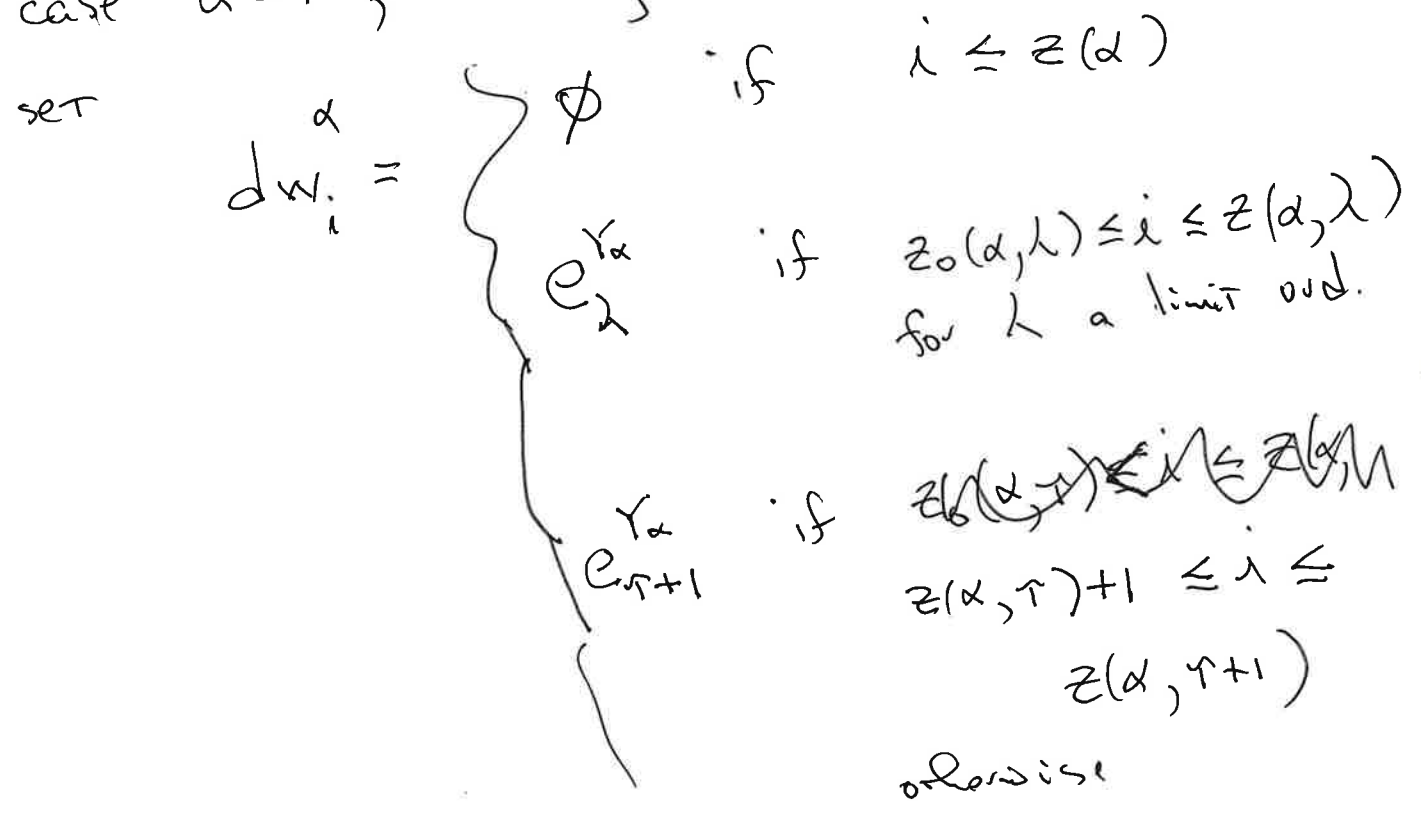 case
set dw_i^α = { ∅ if i ≤ z(α)
e_λ^{γ_α} if z_0(α,λ) ≤ i ≤ z(α,λ)
for λ a limit ord.
e_{τ+1}^{γ_α} if
z(α,τ)+1 ≤ i ≤
z(α,τ+1)
otherwise